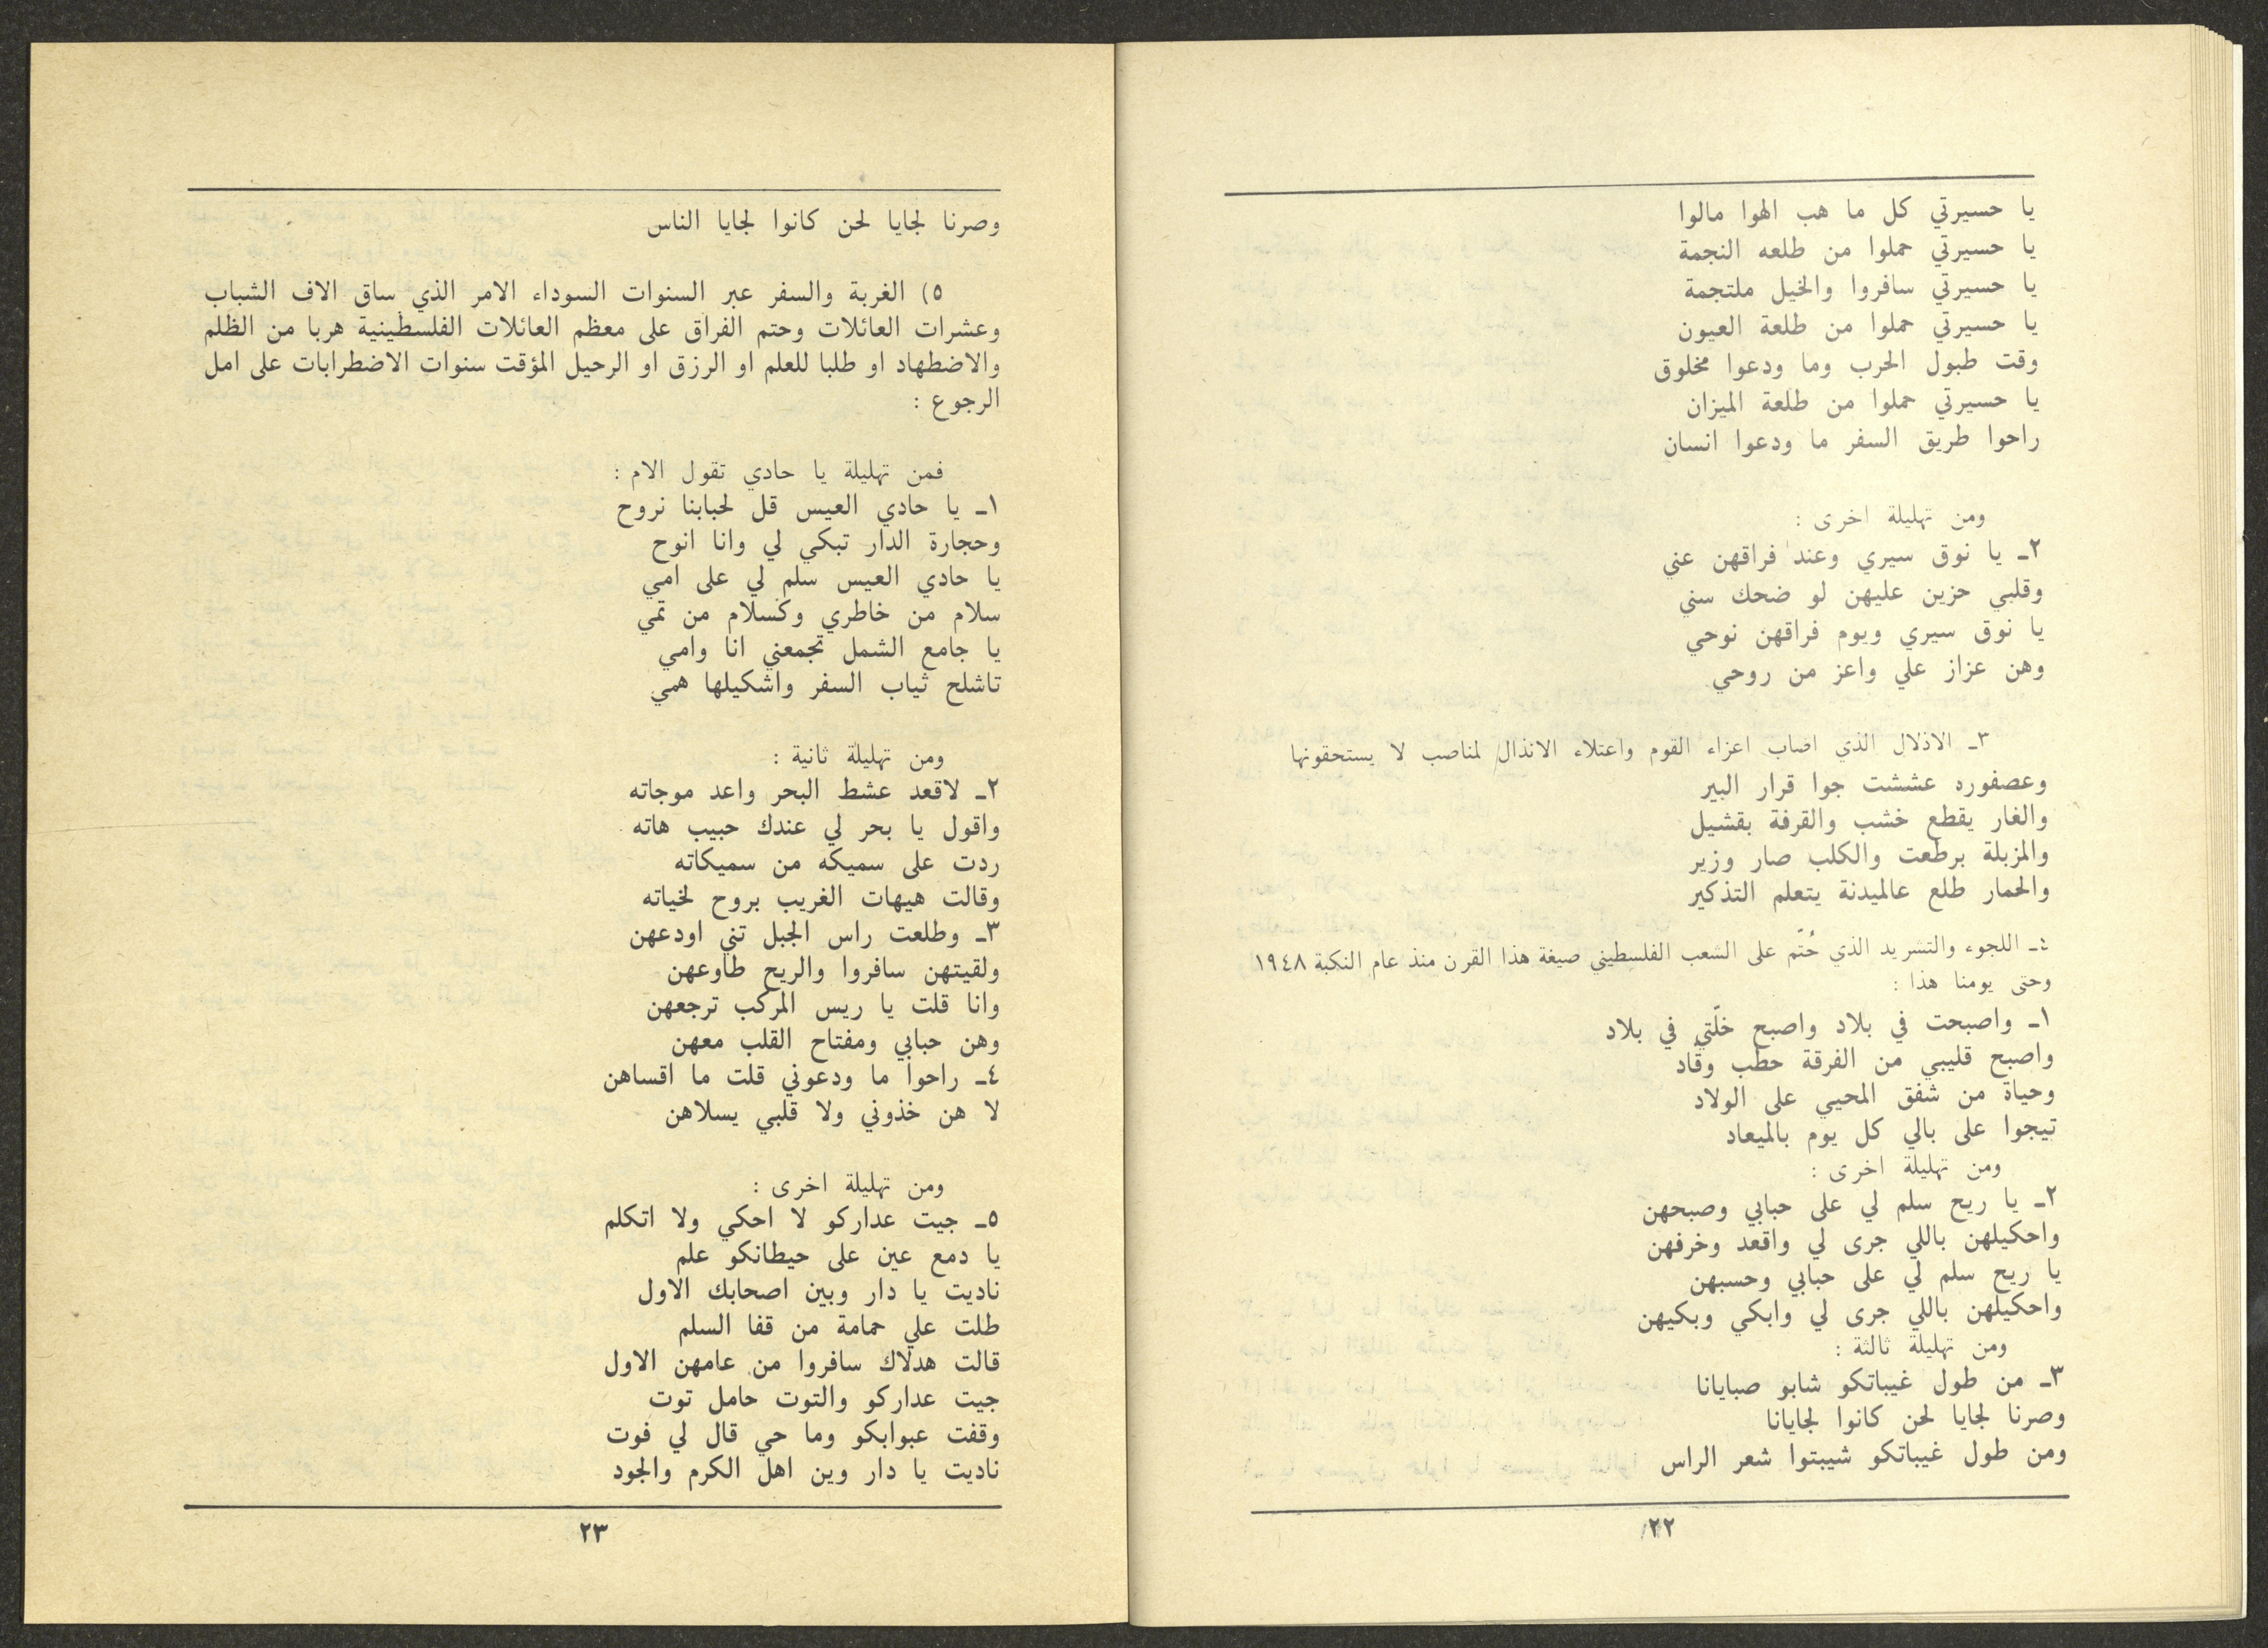 يا حسيرتي كل ما هب الهوا مالوا
يا حسيرتي حملوا من طلعه النجمة
يا حسيرتي سافروا والخيل ملتجمة
يا حسيرتي حملوا من طلعة العيون
وقت طبول الحرب وما ودعوا مخلوق
يا حسيرتي حملوا من طلعة الميزان
راحوا طريق السفر ما ودعوا انسان
ومن تهليلة اخرى :
٢ـ يا نوق سيري وعند فراقهن عني
وقلبي حزين عليهن لو ضحك سني
يا نوق سيري ويوم فراقهن نوحي
وهن عزاز علي واعز من روحي
٣ـ الاذلال الذي اصاب اعزاء القوم واعتلاء الانذال لمناصب لا يستحقونها
وعصفوره عششت جوا قرار البير
والغار يقطع خشب والقرفة بقشيل
والمزبلة برطعت والكلب صار وزير
والحمار طلع عالميدنة يتعلم التذكير
٤ـ اللجوء والتشريد الذي حُتّم على الشعب الفلسطيني صيغة هذا القرن منذ عام النكبة ١٩٤٨
وحتى يومنا هذا :
١ـ واصبحت في بلاد واصبح خلّتي في بلاد
واصبح قليبي من الفرقة حطب وقّاد
وحياة من شفق المحيي على الولاد
تيجوا على بالي كل يوم بالميعاد
ومن تهليلة اخرى :
٢ـ يا ريح سلم لي على حبابي وصبحهن
واحكيلهن باللي جرى لي واقعد وخرفهن
يا ريح سلم لي على حبابي وحسبهن
واحكيلهن باللي جرى لي وابكي وبكيهن
ومن تهليلة ثالثة :
٣ـ من طول غيباتكو شابو صبايانا
وصرنا لجايا لحن كانوا لجايانا
ومن طول غيباتكو شيبتوا شعر الراس
٢٢
وصرنا لجايا لحن كانوا لجايا الناس
٥) الغربة والسفر عبر السنوات السوداء الامر الذي ساق الاف الشباب
وعشرات العائلات وحتم الفراق على معظم العائلات الفلسطينية هربا من الظلم
والاضطهاد او طلبا للعلم او الرزق او الرحيل المؤقت سنوات الاضطرابات على امل
الرجوع :
فمن تهليلة يا حادي تقول الام :
١ـ يا حادي العيس قل لحبابنا نروح
وحجارة الدار تبكي لي وانا انوح
يا حادي العيس سلم لي على امي
سلام من خاطري وكسلام من تمي
يا جامع الشمل تجمعني انا وامي
تاشلح ثياب السفر واشكيلها همي
ومن تهليلة ثانية :
٢ـ لاقعد عشط البحر واعد موجاته
واقول يا بحر لي عندك حبيب هاته
ردت على سميكه من سميكاته
وقالت هيهات الغريب بروح لخياته
٣ـ وطلعت راس الجبل تني اودعهن
ولقيتهن سافروا والريح طاوعهن
وانا قلت يا ريس المركب ترجعهن
وهن حبابي ومفتاح القلب معهن
٤ـ راحوا ما ودعوني قلت ما اقساهن
لا هن خذوني ولا قلبي يسلاهن
ومن تهليلة اخرى :
٥ـ جيت عداركو لا احكي ولا اتكلم
يا دمع عين على حيطانكو علم
ناديت يا دار وبين اصحابك الاول
طلت علي حمامة من قفا السلم
قالت هدلاك سافروا من عامهن الاول
جيت عداركو والتوت حامل توت
وقفت عبوابكو وما حي قال لي فوت
ناديت يا دار وين اهل الكرم والجود
٢٣